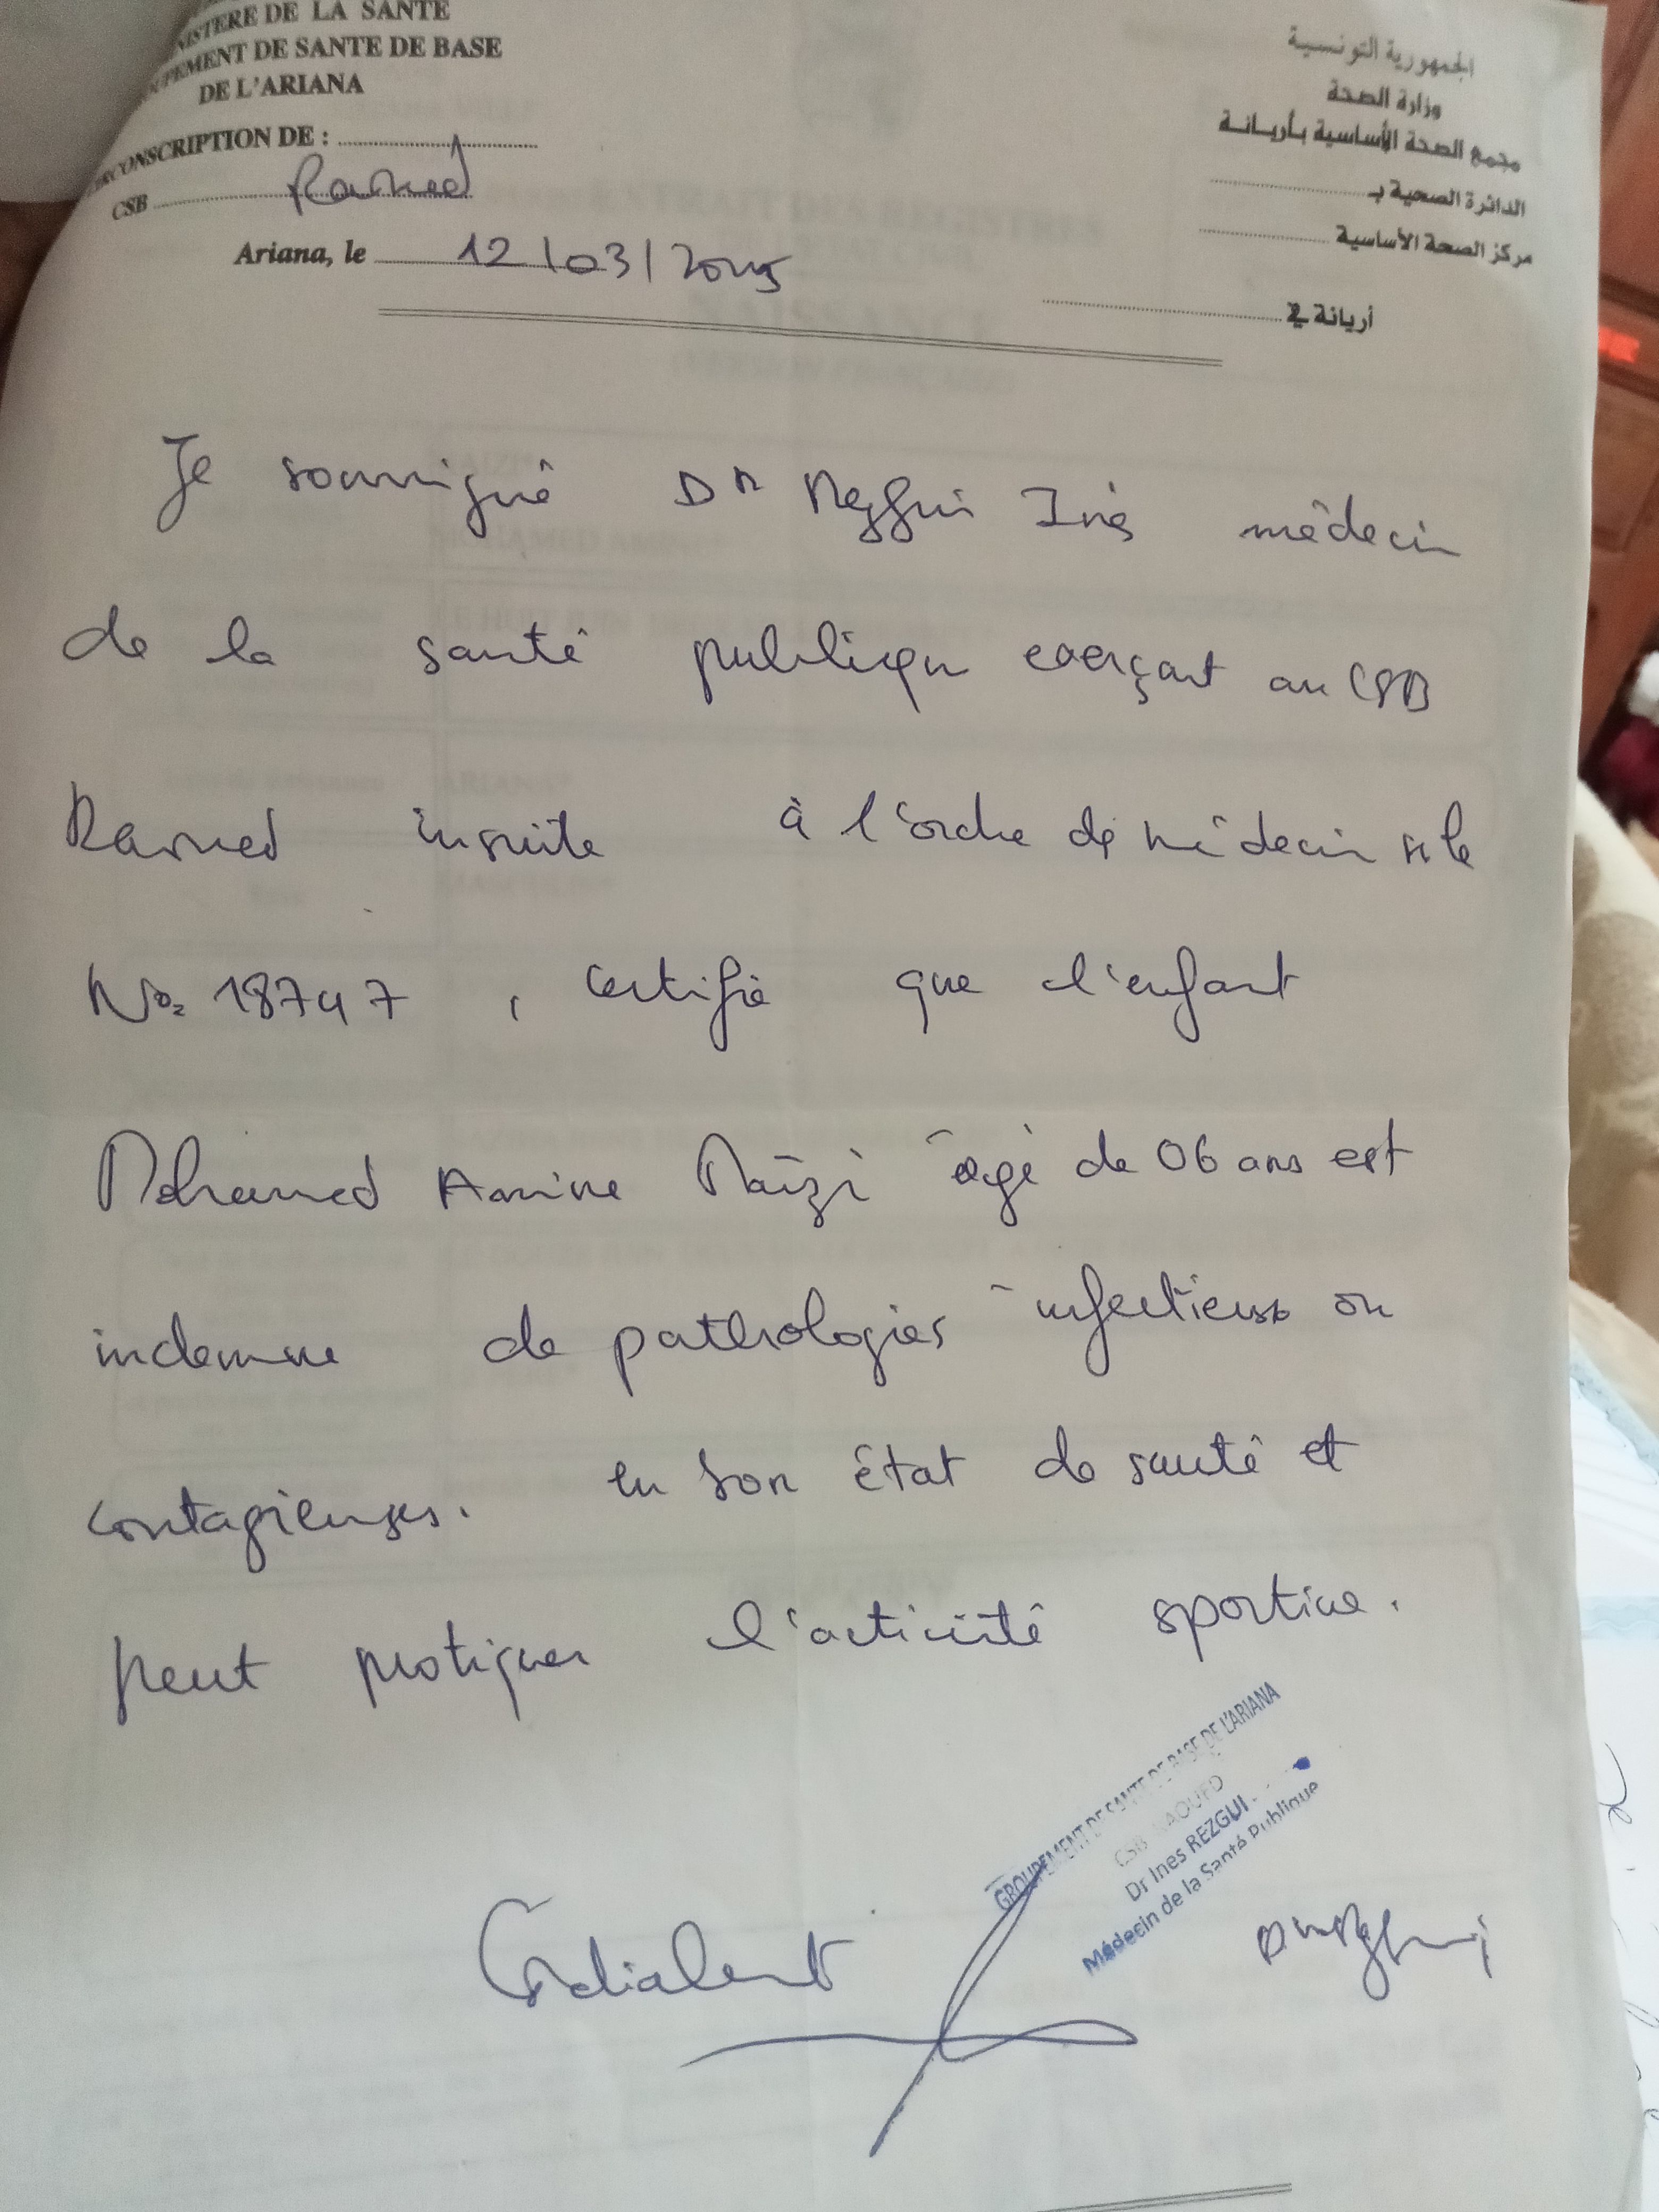 MINISTERE DE LA SANTE
GROUPEMENT DE SANTE DE BASE
DE L'ARIANA
CIRCONSCRIPTION DE :
CSB Raoued
Ariana, le 12/03/2025
الجمهورية التونسية
وزارة الصحة
مجمع الصحة الأساسية بأريانة
الدائرة الصحية بـ
مركز الصحة الأساسية
أريانة في
Je soussigné Dr Rezgui Inès médecin
de la santé publique exerçant au CSB
Raoued inscrite à l'ordre de médecin ss le
No: 18747, certifie que l'enfant
Mohamed Amine Maïzi âgé de 06 ans est
indemne de pathologies infectieuses ou
contagieuses. en son état de santé et
peut pratiquer l'activité sportive.
GROUPEMENT DE SANTE DE BASE DE L'ARIANA
CSB RAOUED
Dr Ines REZGUI
Médecin de la Santé Publique
Cordialement